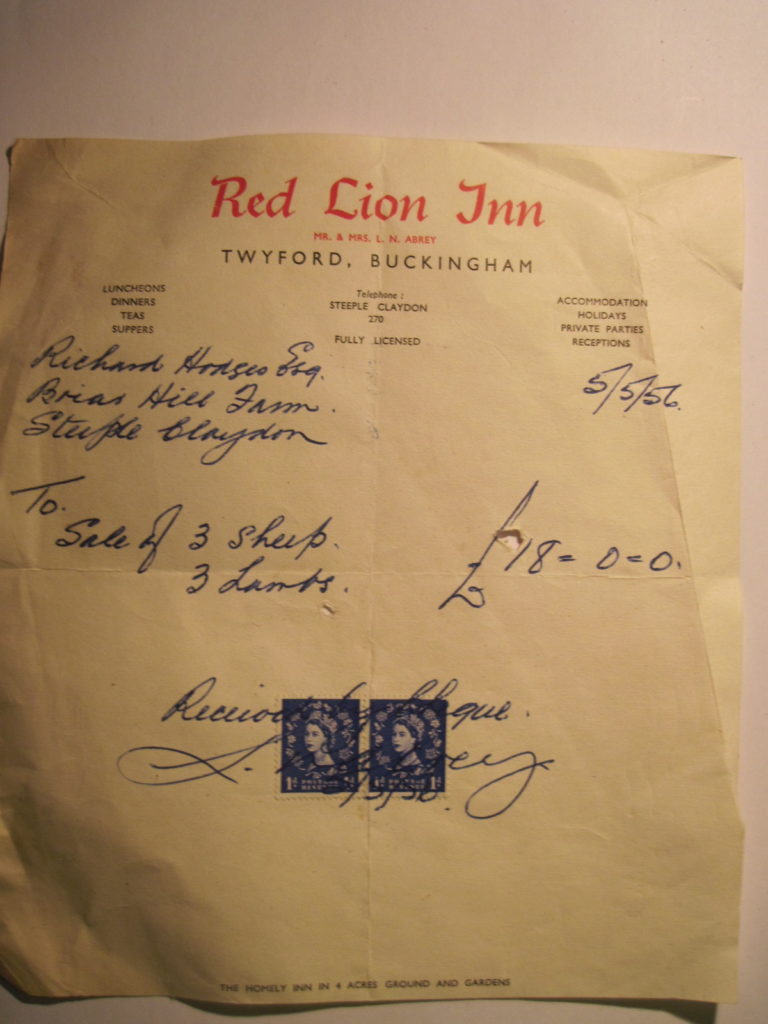 Red Lion Inn
MR. & MRS. L. N. ABREY
TWYFORD, BUCKINGHAM
LUNCHEONS
DINNERS
TEAS
SUPPERS
Telephone :
STEEPLE CLAYDON
270
FULLY LICENSED
ACCOMMODATION
HOLIDAYS
PRIVATE PARTIES
RECEPTIONS
Richard Hodges Esq.
Briar Hill Farm.
Steeple Claydon
5/5/56.
To.
Sale of 3 Sheep.
3 Lambs.
£18 = 0 = 0.
Received by Cheque.
L. Abrey
5/5/56.
1d POSTAGE REVENUE
1d POSTAGE REVENUE 1d
THE HOMELY INN IN 4 ACRES GROUND AND GARDENS